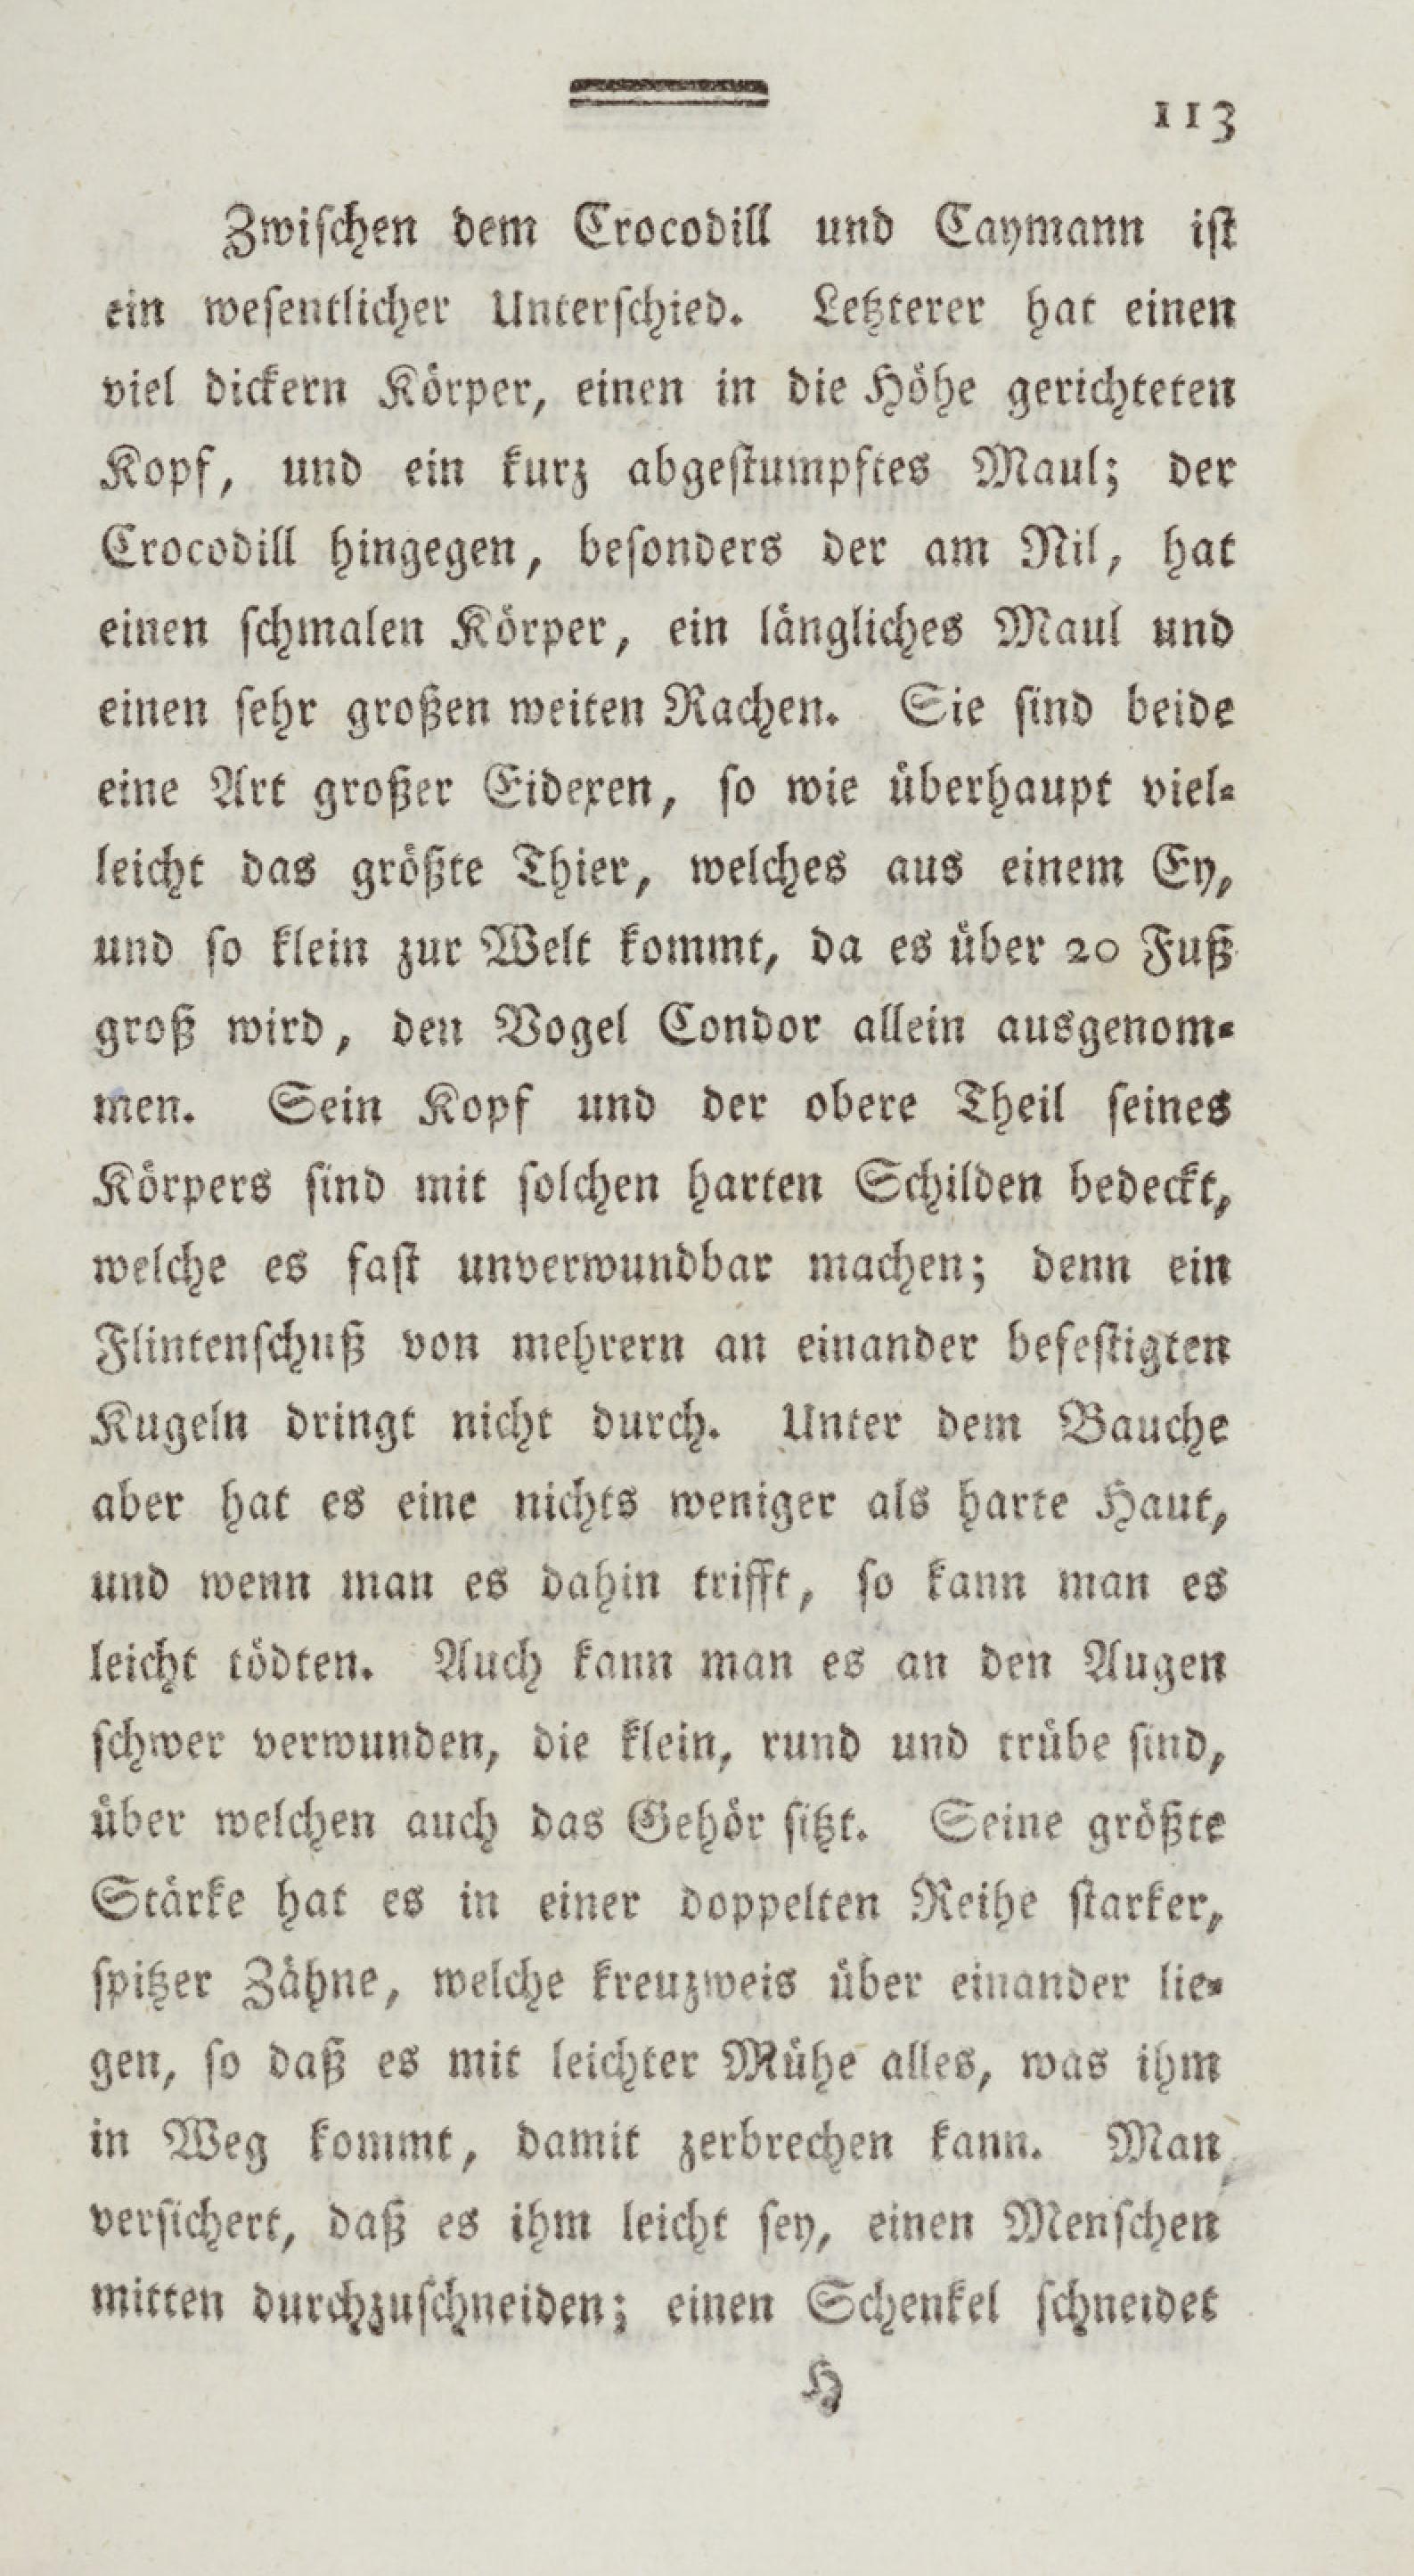 113
Zwiſchen dem Crocodill und Caymann iſt
ein weſentlicher Unterſchied. Letzterer hat einen
viel dickern Körper, einen in die Höhe gerichteten
Kopf, und ein kurz abgeſtumpftes Maul; der
Crocodill hingegen, beſonders der am Nil, hat
einen ſchmalen Körper, ein längliches Maul und
einen ſehr großen weiten Rachen. Sie ſind beide
eine Art großer Eidexen, ſo wie überhaupt viel⸗
leicht das größte Thier, welches aus einem Ey,
und ſo klein zur Welt kommt, da es über 20 Fuß
groß wird, den Vogel Condor allein ausgenom⸗
men. Sein Kopf und der obere Theil ſeines
Körpers ſind mit ſolchen harten Schilden bedeckt,
welche es faſt unverwundbar machen; denn ein
Flintenſchuß von mehrern an einander befeſtigten
Kugeln dringt nicht durch. Unter dem Bauche
aber hat es eine nichts weniger als harte Haut,
und wenn man es dahin trifft, ſo kann man es
leicht tödten. Auch kann man es an den Augen
ſchwer verwunden, die klein, rund und trübe ſind,
über welchen auch das Gehör ſitzt. Seine größte
Stärke hat es in einer doppelten Reihe ſtarker,
ſpitzer Zähne, welche kreuzweis über einander lie⸗
gen, ſo daß es mit leichter Mühe alles, was ihm
in Weg kommt, damit zerbrechen kann. Man
verſichert, daß es ihm leicht ſey, einen Menſchen
mitten durchzuſchneiden; einen Schenkel ſchneidet
H